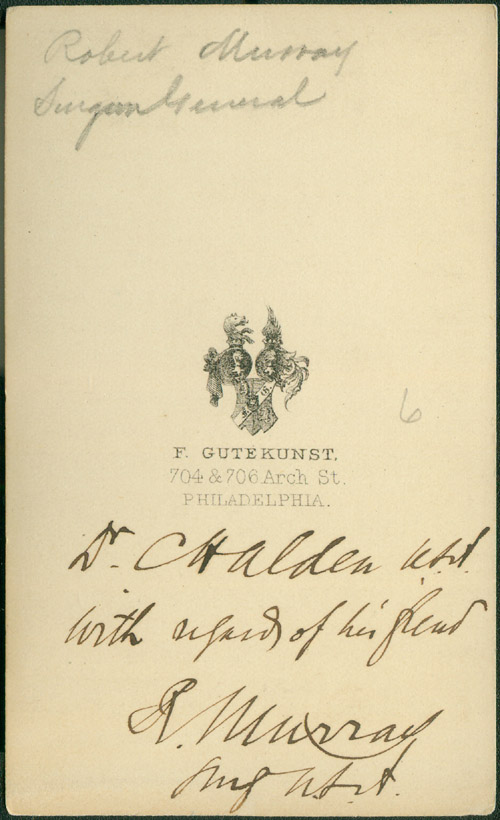 Robert Murray
Surgeon General
6
F. GUTEKUNST,
704 & 706 Arch St.
PHILADELPHIA.
Dr. C H Alden U.S.A.
with regards of his friend
R. Murray
Surg U.S.A.